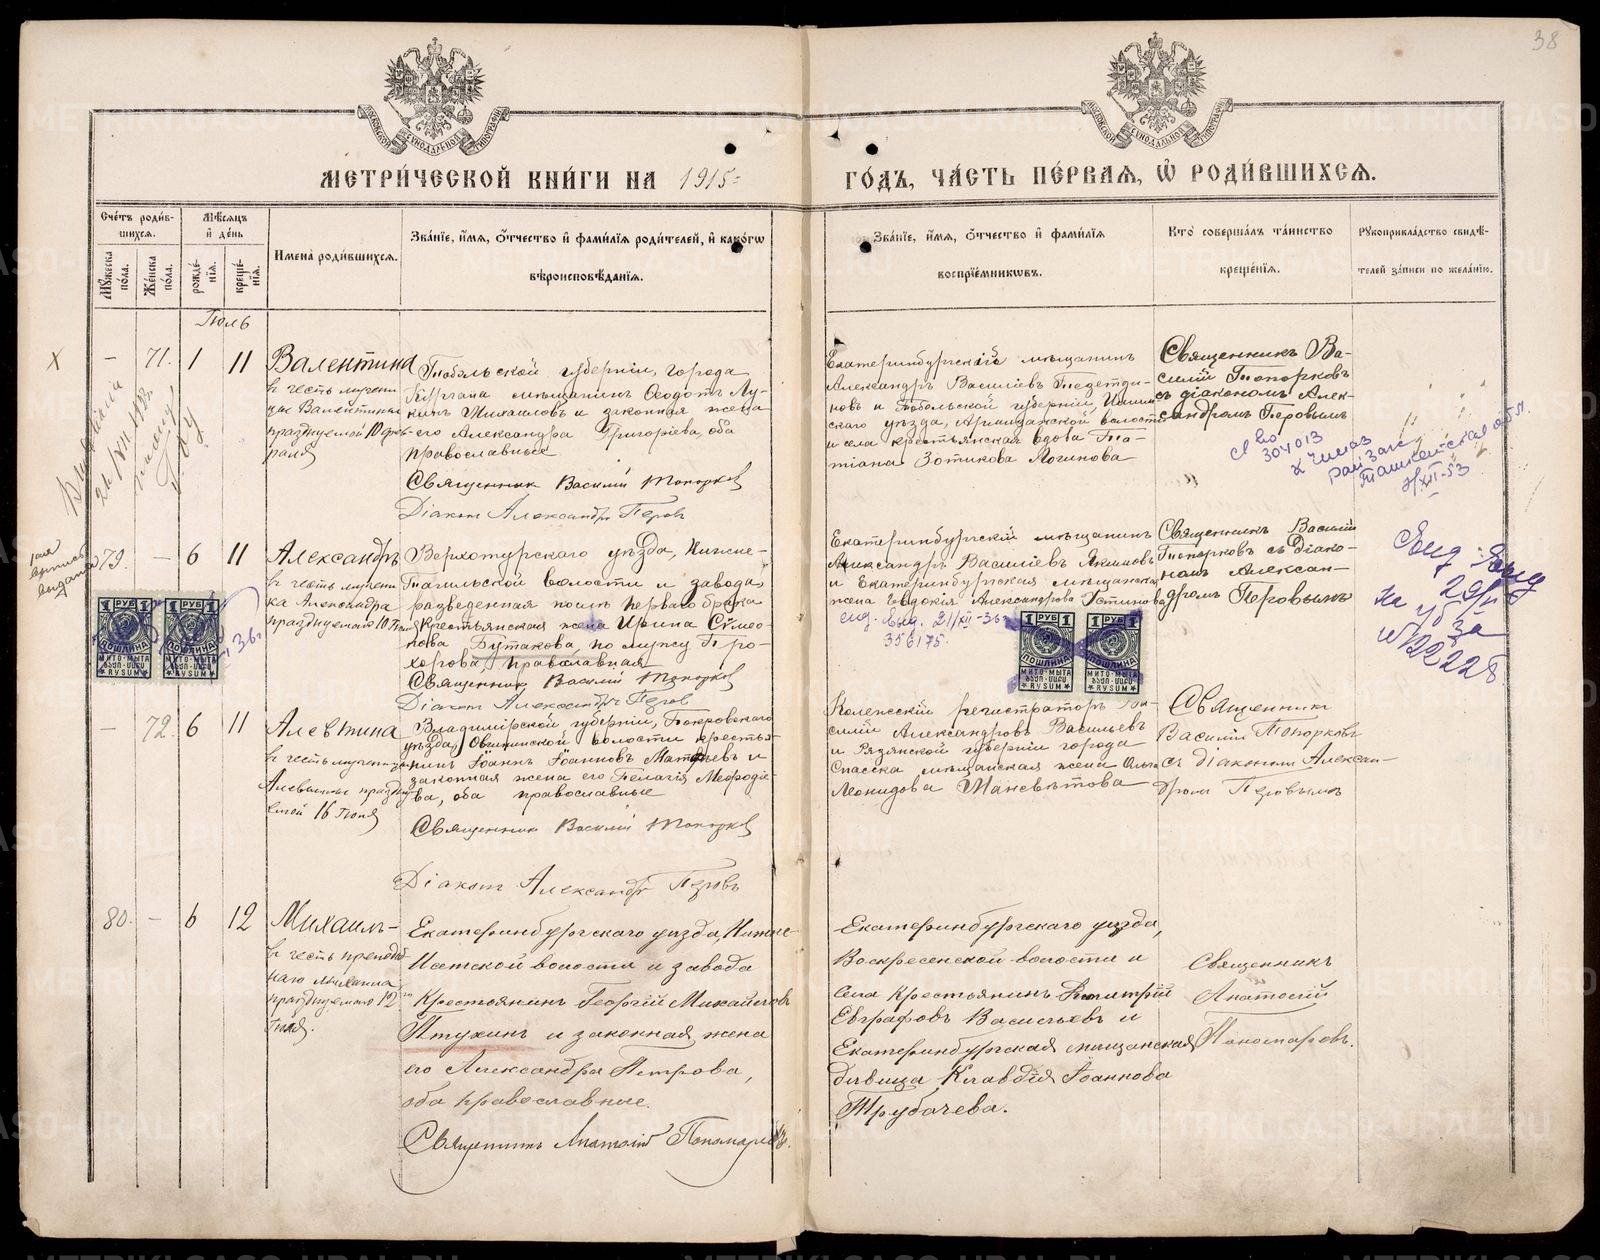 38
МЕТРИЧЕСКОЙ КНИГИ НА 1915
ГОДЪ, ЧАСТЬ ПЕРВАЯ, Ѡ РОДИВШИХСЯ.
Счетъ родив-
шихся.
Мужеска пола.
Женска пола.
Мѣсяцъ
и день
рожде-
нія.
креще-
нія.
Имена родившихся.
Званіе, имя, отчество и фамилія родителей, и какогѡ
вѣроисповѣданія.
Званіе, имя, отчество и фамилія
воспріемникωвъ.
Кто совершалъ таинство
крещенія.
Рукоприкладство свидѣ-
телей записи по желанію.
71. 1 11 Валентина
в честь мучени
цы Валентины
празднуемой 10 фев-
раля
Тобольской губерніи, города
Кургана мѣщанинъ Ѳеодотъ Лу-
кинъ Михайловъ и законная жена
его Александра Григорьева, оба
православные
Священник Василій Топорков
Діакон Александръ Перовъ
Екатеринбургскій мѣщанинъ
Александръ Василіевъ
новъ и Тобольской губерніи, Ишим
скаго уѣзда, Армизонской волости
и села крестьянская вдова Та-
тіана Зотикова Логинова
Священникъ Ва-
силій Топорковъ
съ діакономъ Алек-
сандромъ Перовымъ
св во
304013
Ташкентская обл.
79. - 6 11 Александръ
в честь мучени
ка Александра
празднуемаго 10 Іюня
Верхотурскаго уѣзда, Нижне-
Тагильской волости и завода
разведенная послѣ перваго брака
Крестьянская жена Ирина Сѵмео-
нова Бутакова, по мужу Про-
хорова православная
Священник Василій Топорков
Діакон Александръ Перов
Екатеринбургскій мѣщанинъ
Александръ Василіевъ
и Екатеринбургская мѣщанская
жена Евдокія Александрова Устинова
356175.
Священникъ Василій
Топорковъ съ Діако-
номъ Алексан-
дромъ Перовымъ
1 РУБ 1
ПОШЛИНА
МИТО·МЫТА
RVSUM
1 РУБ 1
ПОШЛИНА
МИТО·МЫТА
RVSUM
- 72. 6 11 Алевтина
в честь мученицы
Алевтины праздну
емой 16 Іюля
Владимірской губерніи, Покровскаго
уѣзда, Овчининской волости крестья-
нинъ Іоаннъ Іоанновъ Матвѣевъ и
законная жена его Пелагія Меѳодіе-
ва, оба православные
Священник Василій Топорков
Діакон Александръ Перовъ
Коллежскій регистраторъ Ва-
силій Александровъ Васильевъ
и Рязанской губерніи города
Спасска мѣщанская жена Ольга
Леонидова Мансвѣтова
Священникъ
Василій Топорковъ
съ діакономъ Алексан-
дромъ Перовымъ
80. - 6 12 Михаилъ
в честь преподоб
наго Михаила
празднуемаго 12го
Іюля.
Екатеринбургскаго уѣзда, Нижне-
Исетской волости и завода
Крестьянинъ Георгій Михайловъ
Птухинъ и законная жена
его Александра Петрова,
оба православные.
Священникъ Анатолій Пономаревъ.
Екатеринбургскаго уѣзда,
Воскресенской волости и
села крестьянинъ Димитрій
Евграфовъ Васильевъ и
Екатеринбургская мѣщанская
дѣвица Клавдія Іоаннова
Трубачева.
Священникъ
Анатолій
Пономаревъ.